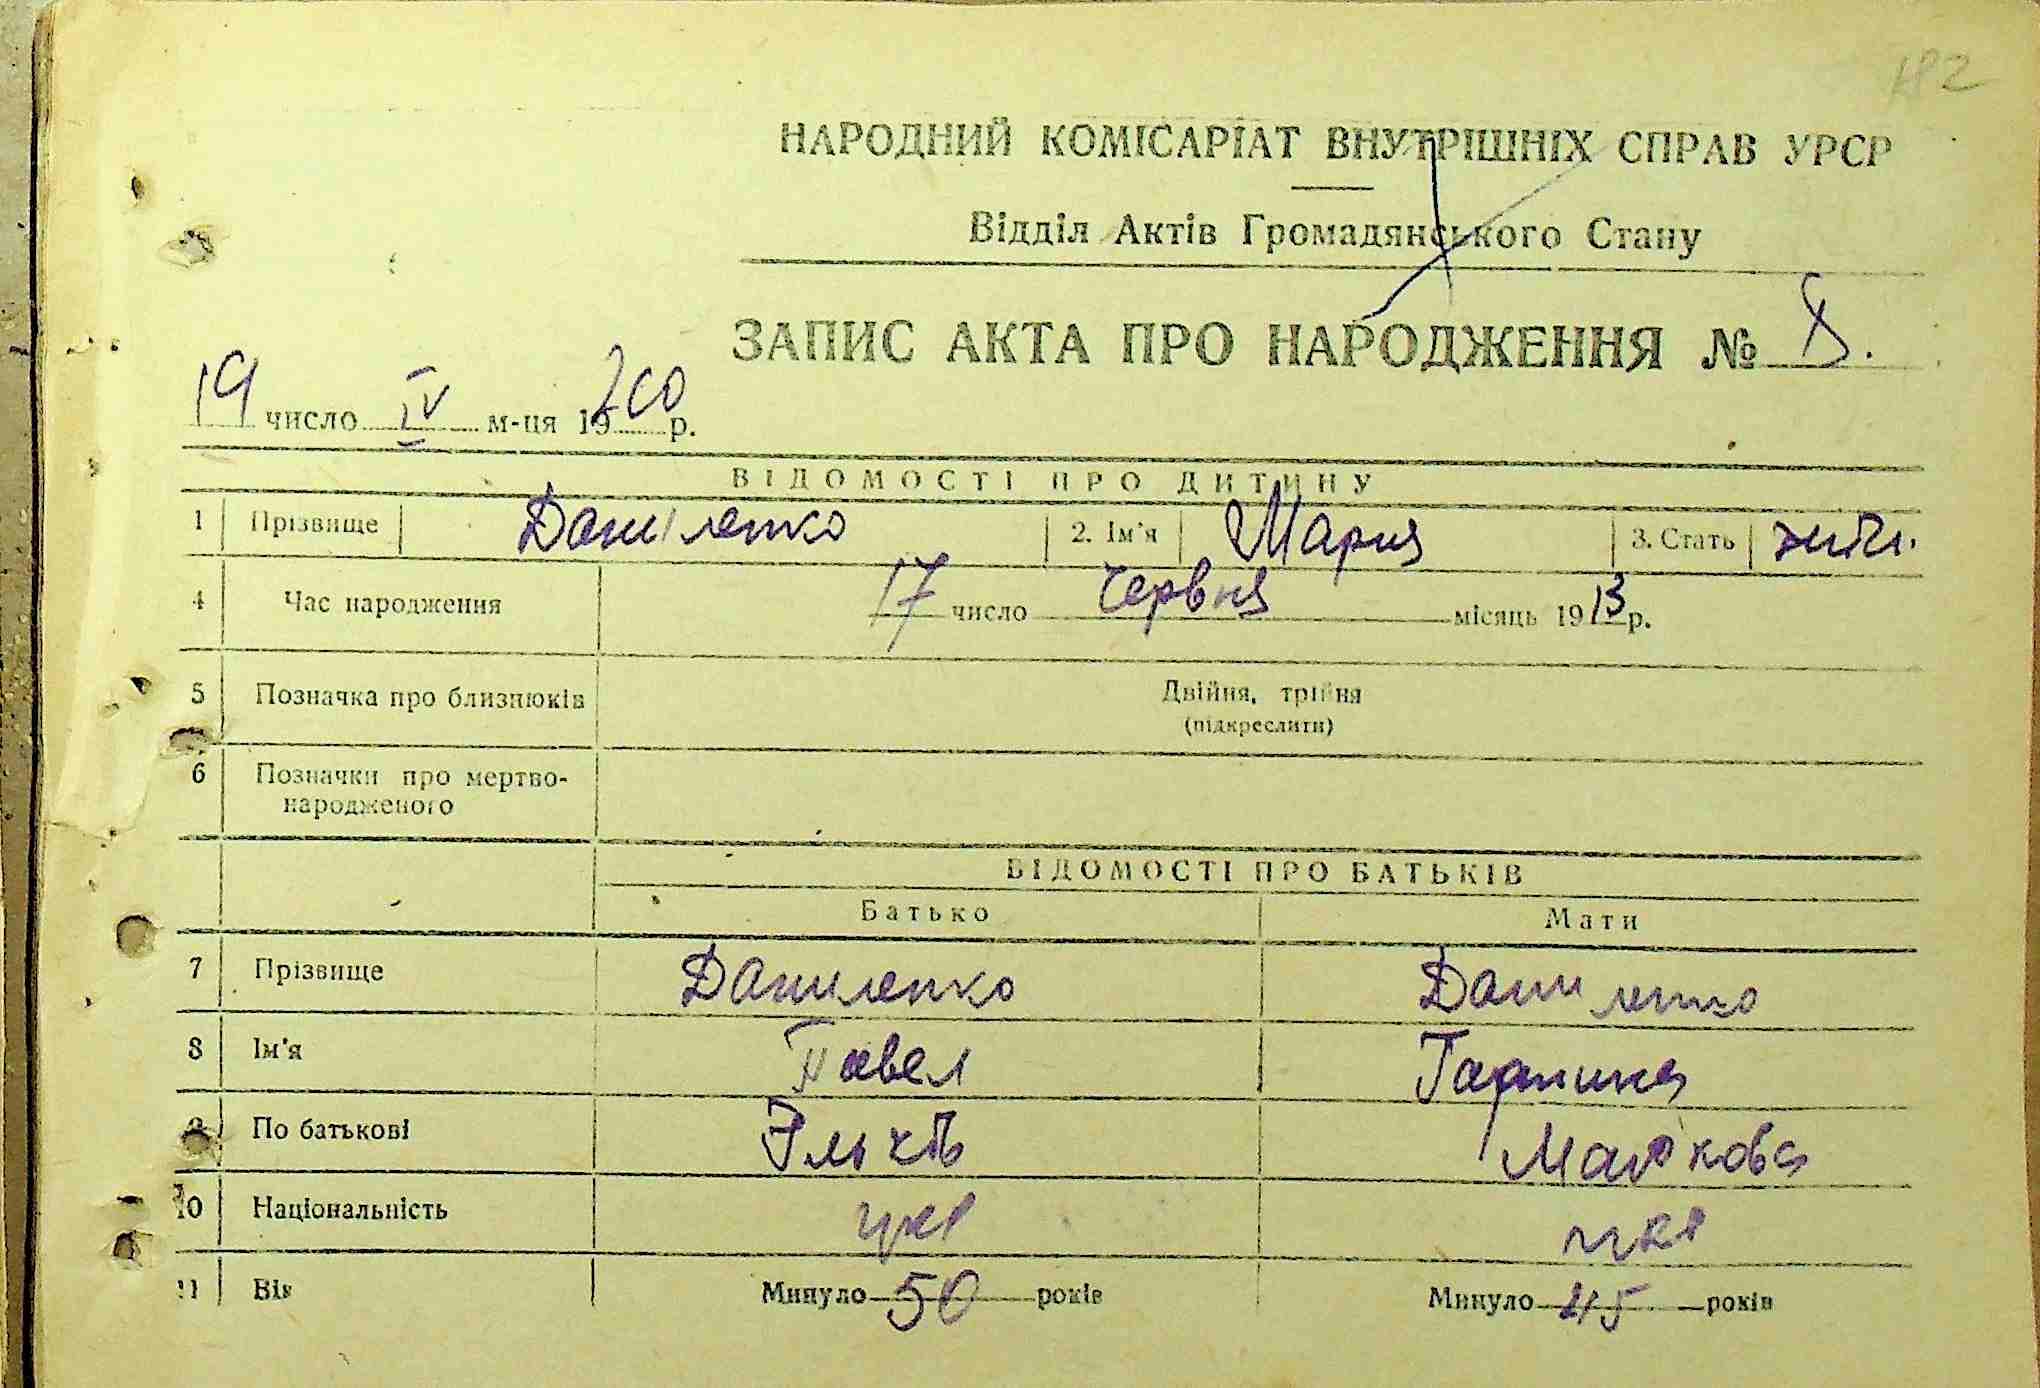 НАРОДНИЙ КОМІСАРІАТ ВНУТРІШНІХ СПРАВ УРСР
Відділ Актів Громадянського Стану
ЗАПИС АКТА ПРО НАРОДЖЕННЯ №
19 число IV м-ця 19 р.
ВІДОМОСТІ ПРО ДИТИНУ
1 Прізвище Даниленко 2. Ім'я Мария 3. Стать
4 Час народження 17 число червня місяць 1913 р.
5 Позначка про близнюків Двійня, трійня
(підкреслити)
6 Позначки про мертво-
народженого
ВІДОМОСТІ ПРО БАТЬКІВ
Батько Мати
7 Прізвище Даниленко Даниленко
8 Ім'я Павел
9 По батькові Маркова
10 Національність укр укр
11 Вік Минуло 50 років Минуло 45 років